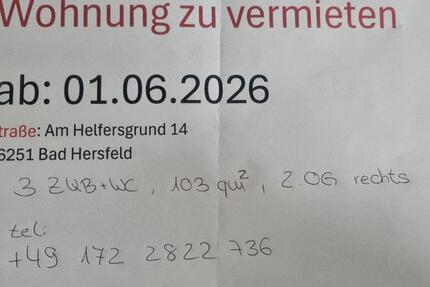 Wohnung zu vermieten
ab: 01.06.2026
traße: Am Helfersgrund 14
6251 Bad Hersfeld
3 ZKB+WC, 103 qm², 2.OG rechts
tel:
+49 172 2822 736